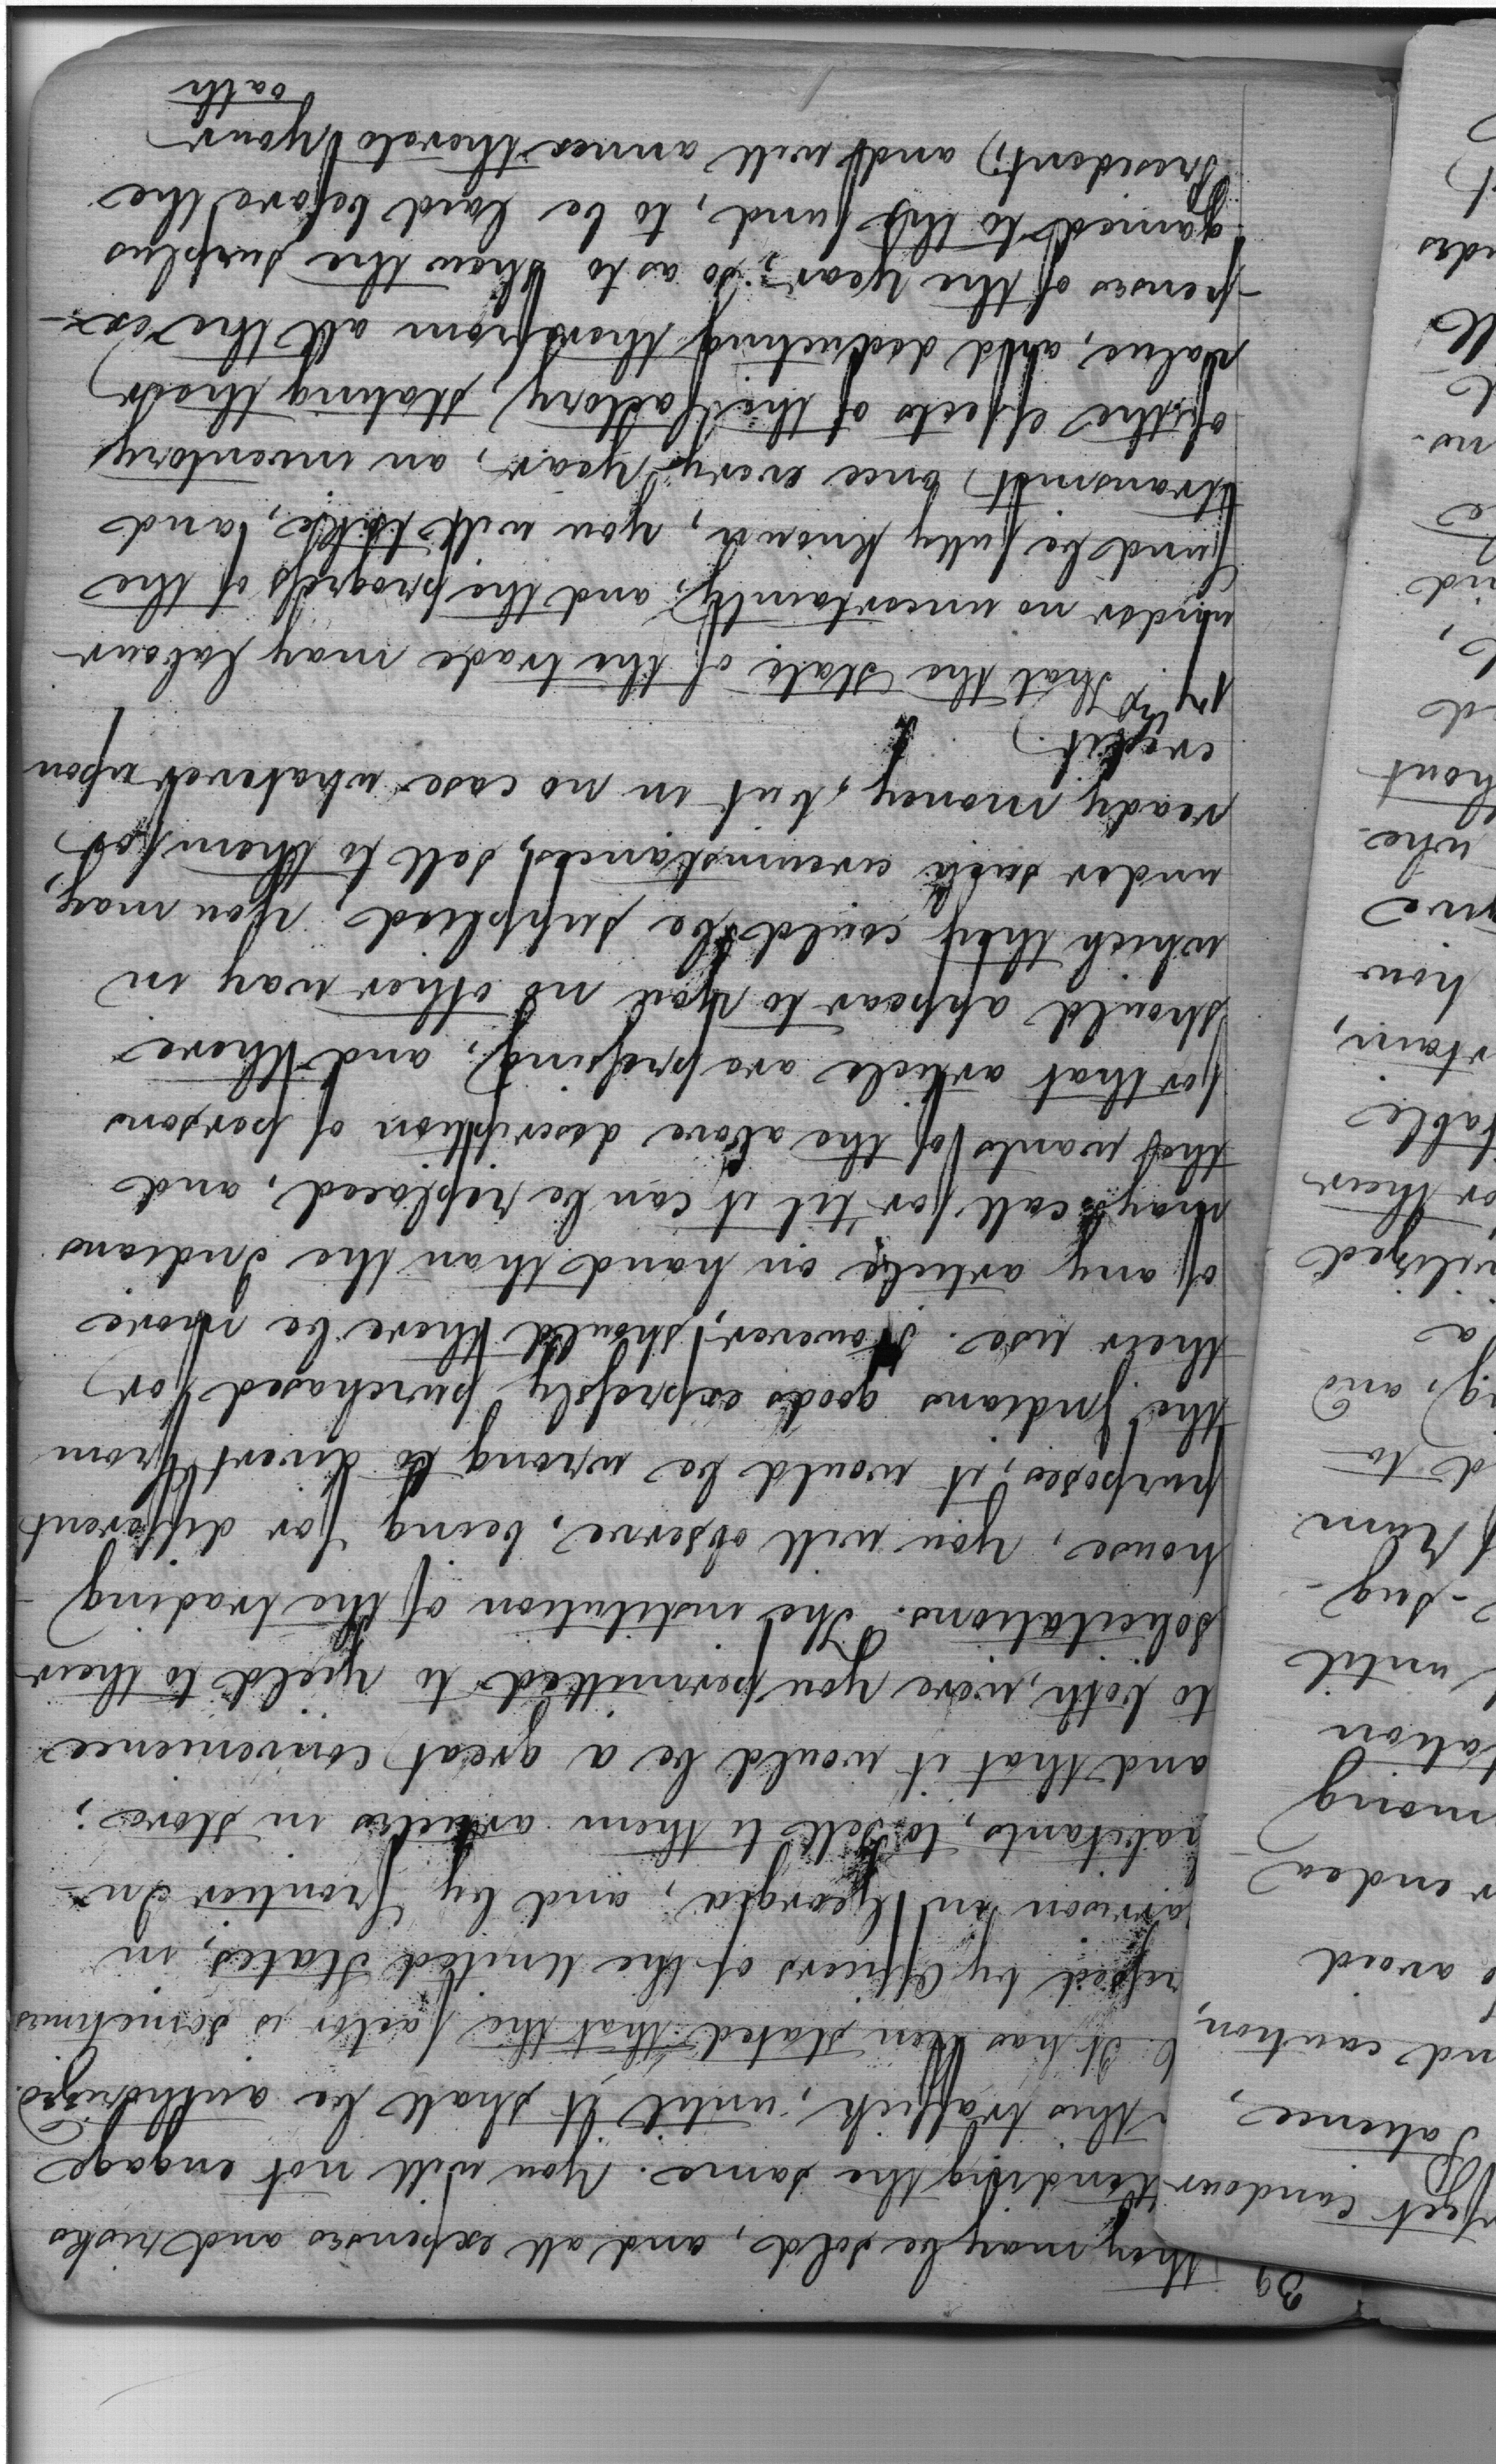 39
they may be sold, and all expenses and risks
attending the same. You will not engage
in this traffick, until it shall be authorized.
6. It has been stated that the factor is sometimes
pressed by Officers of the United States, in
Garrison in Georgia, and by frontier In-
habitants, to sell to them articles in store;
and that it would be a great convenience
to both, were you permitted to yield to their
solicitations. The institution of the trading
house, you will observe, being for different
purposes, it would be wrong to divert from
the Indians goods expressly purchased for
their use. However, should there be more
of any article on hand than the Indians
may call for 'til it can be replaced, and
the wants of the above description of persons
for that article are pressing, and there
should appear to you no other way in
which they could be supplied, you may,
under such circumstances, sell to them for
ready money, but in no case whatever upon
credit.
7 That the State of the trade may labour
under no uncertainty, and the progress of the
fund be fully known, you will take, and
transmit, once every year, an inventory
of the effects of the factory, stating their
value, and deducting therefrom all the ex-
-penses of the year; so as to shew the surplus
gained to the fund, to be laid before the
President, and will annex thereto your
oath
perfect candour
patience,
and caution,
avoid
endea
among
tation
until
sug-
Rum
d to
g, and
a
civilized
for their
table
rtain,
how
give
whe-
thout
d
and
no-